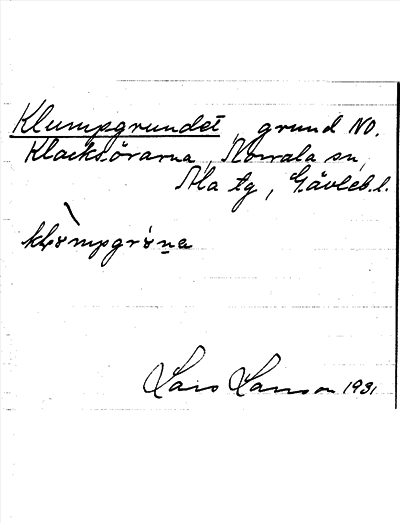 Klumpgrundet, grund NO.
Klacksörarna, Norrala sn,
Ala tg, Gävleb. l.
Lars Larsson 1931